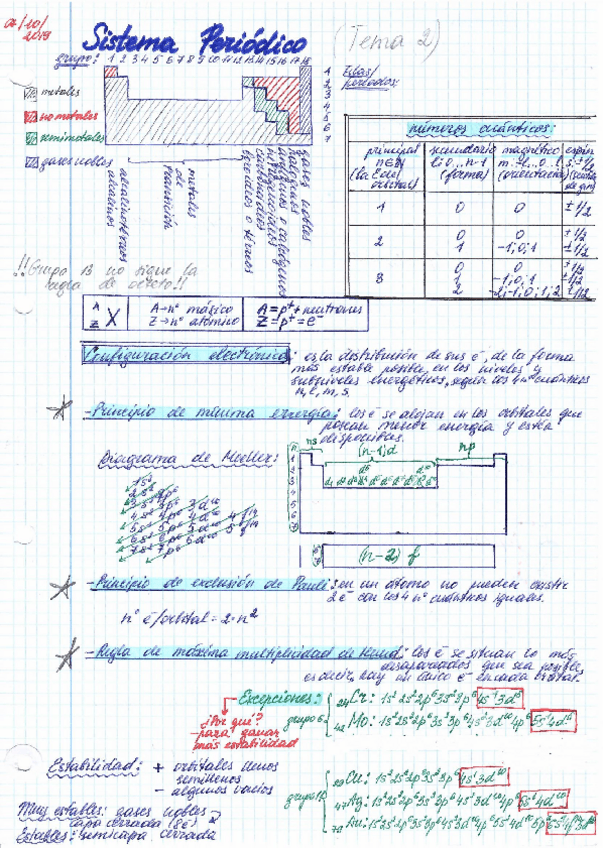 02/10/2019
Sistema Periódico (Tema 2)
grupo: 1 2 3 4 5 6 7 8 9 10 11 12 13 14 15 16 17 18
1
2
3
4
5
6
7
filas/
períodos:
metales
no metales
semimetales
gases nobles
alcalinos
alcalinotérreos
metales
de
transición
térreos
gases nobles
!!Grupo 13 no sigue la
regla de octeto!!
números cuánticos:
principal secundario magnético espín
(forma) (orientación)
1 0 0 ±1/2
2 0 0 ±1/2
1 -1,0,1 ±1/2
3 0 0 ±1/2
1 -1,0,1
2 -2,-1,0,1,2 ±1/2
A
Z X
A→nº másico A=p⁺+neutrones
Z→nº atómico Z=p⁺=e⁻
Configuración electrónica: es la distribución de sus e⁻, de la forma
más estable posible, en los niveles y
subniveles energéticos, según los 4 nº cuánticos
n, l, m, s.
-Principio de mínima energía: los e⁻ se alojan en los orbitales que
posean menor energía y estén
disponibles.
Diagrama de Moeller:
1s²
2s² 2p⁶
3s² 3p⁶ 3d¹⁰
4s² 4p⁶ 4d¹⁰ 4f¹⁴
5s² 5p⁶ 5d¹⁰ 5f¹⁴
6s² 6p⁶ 6d¹⁰
7s² 7p⁶
n
1
2
3
4
5
6
7
ns
(n-1)d
np
(n-2) f
-Principio de exclusión de Pauli: en un átomo no pueden existir
2 e⁻ con los 4 nº cuánticos iguales.
nº e⁻/orbital = 2·n²
-Regla de máxima multiplicidad de Hund: los e⁻ se sitúan lo más
desapareados que sea posible,
es decir, hay un único e⁻ en cada orbital.
Excepciones:
¿Por qué?
-para ganar
más estabilidad
grupo 6
₂₄Cr: 1s²2s²2p⁶3s²3p⁶ 4s¹3d⁵
₄₂Mo: 1s²2s²2p⁶3s²3p⁶4s²3d¹⁰4p⁶ 5s¹4d⁵
Estabilidad: + orbitales llenos
semillenos
- algunos vacíos
₂₉Cu: 1s²2s²2p⁶3s²3p⁶ 4s¹3d¹⁰
₄₇Ag: 1s²2s²2p⁶3s²3p⁶4s²3d¹⁰4p⁶ 5s¹4d¹⁰
₇₉Au: 1s²2s²2p⁶3s²3p⁶4s²3d¹⁰4p⁶5s²4d¹⁰5p⁶ 6s¹4f¹⁴5d¹⁰
Muy estables: gases nobles
capa cerrada (8e⁻)
Estables: semicapa cerrada